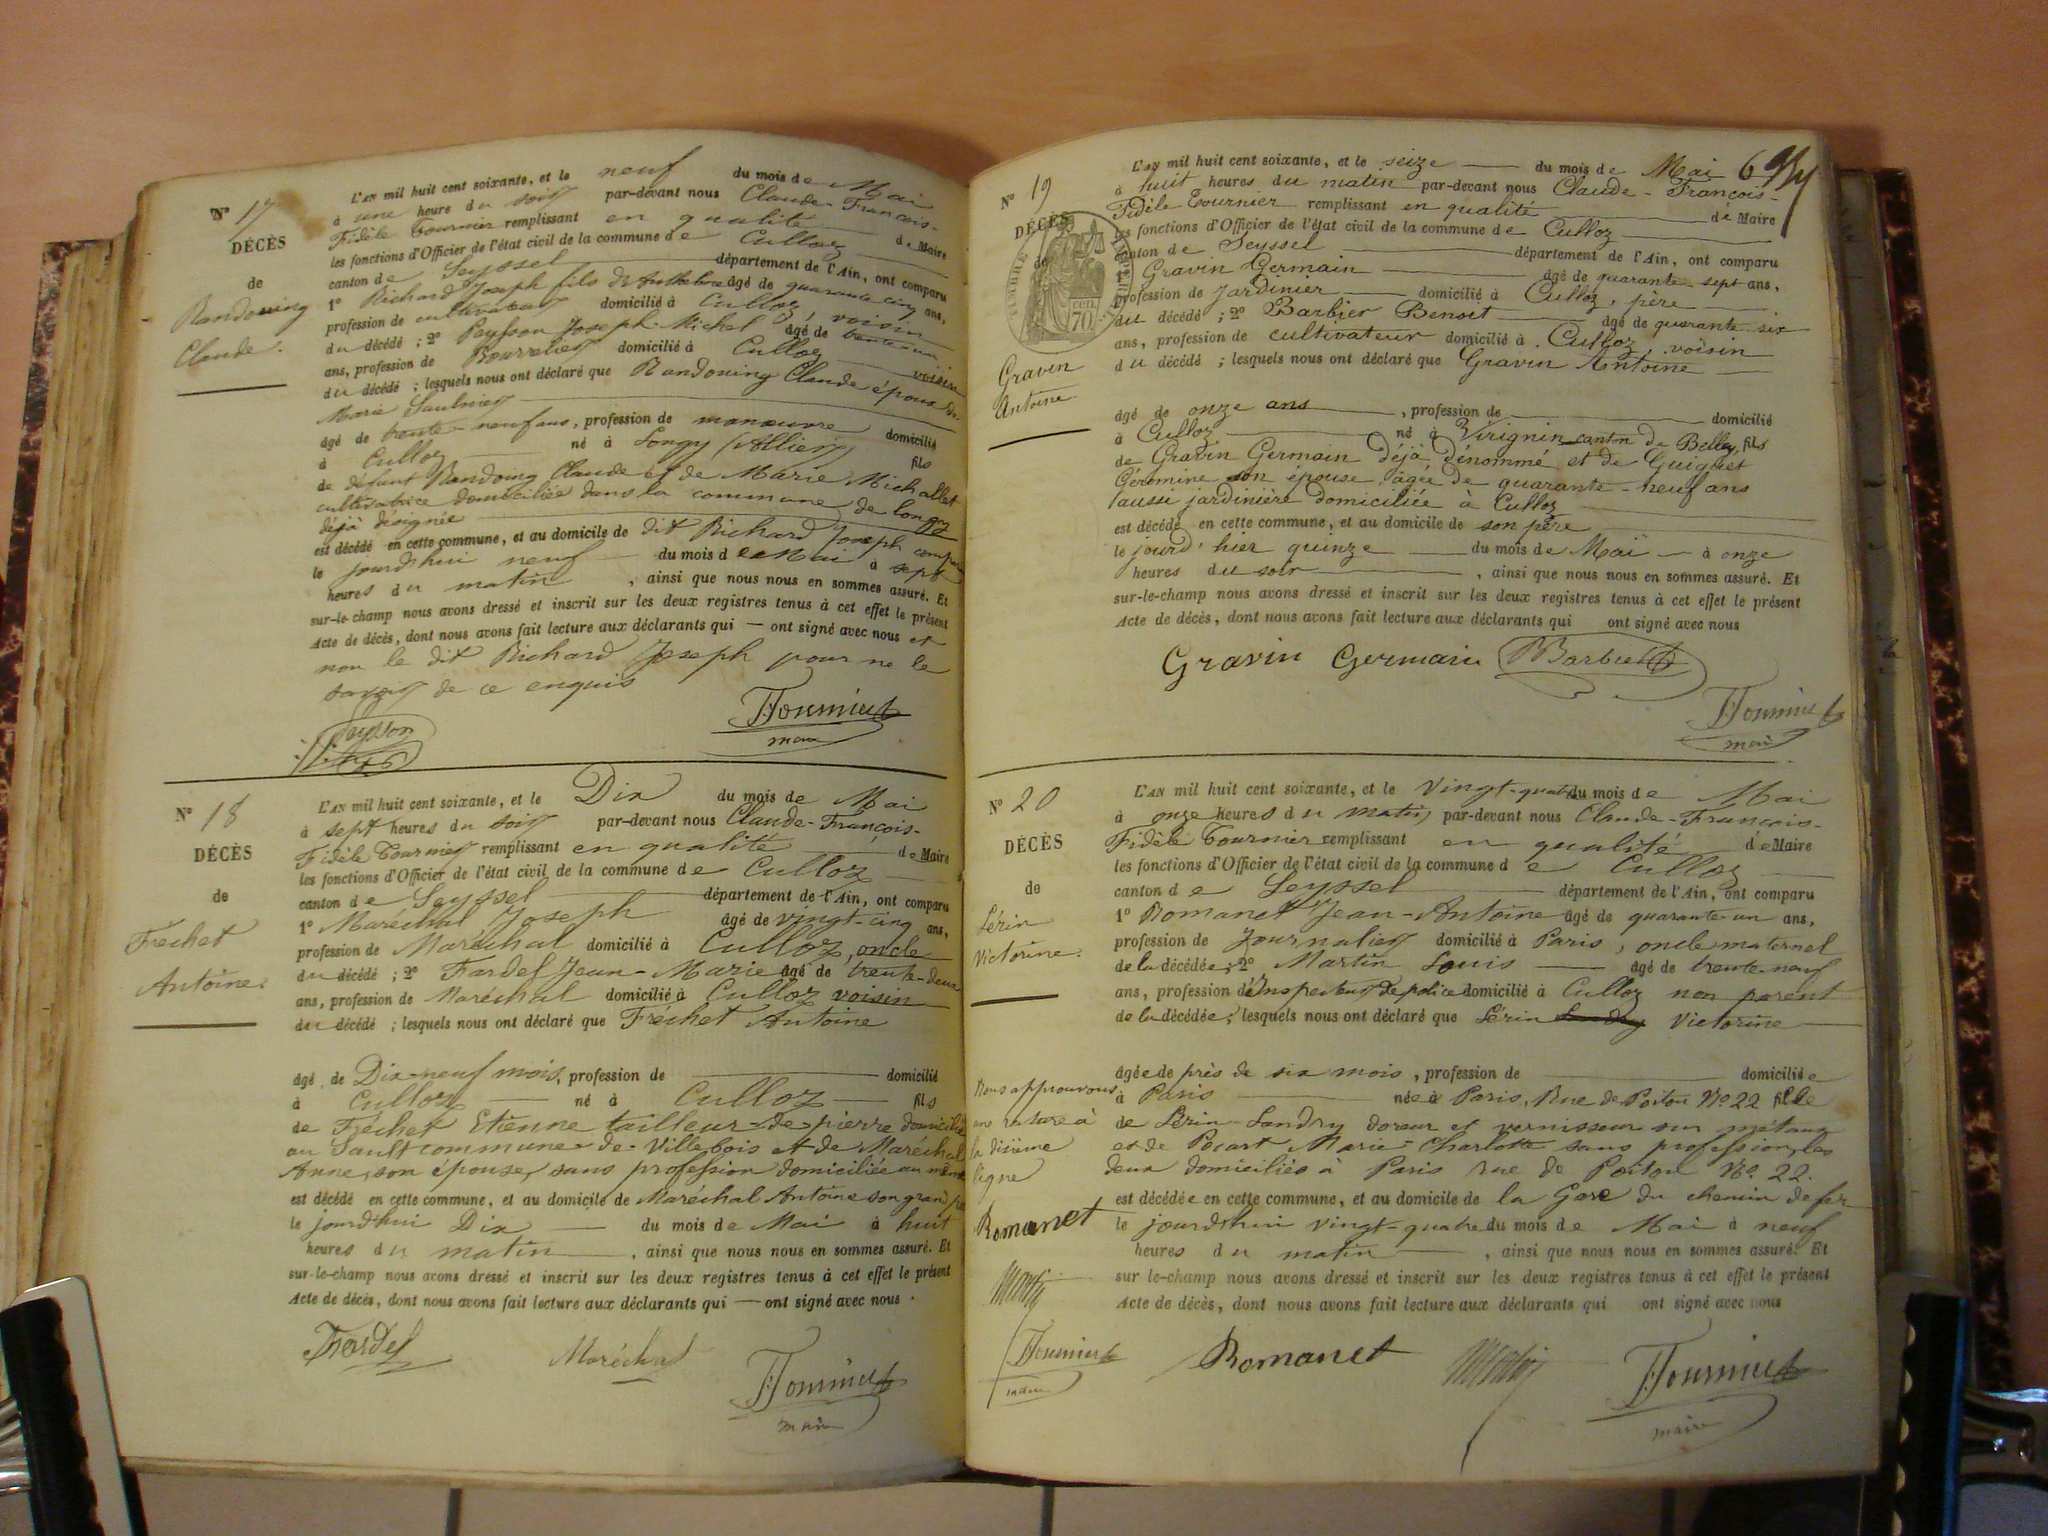 N° 17
DÉCÈS
de
Randoning
Claude.
L'AN mil huit cent soixante, et le neuf du mois de Mai
à une heure du soir par-devant nous Claude-François-
Fidèle Tournier remplissant en qualité de Maire
les fonctions d'Officier de l'état civil de la commune de Culloz
canton de Seyssel département de l'Ain, ont comparu
1° Richard Joseph fils de Anthelme âgé de quarante cinq ans,
profession de cultivateur domicilié à Culloz, voisin
du décédé ; 2° Peysson Joseph-Michel âgé de trente un
ans, profession de Bourrelier domicilié à Culloz voisin
du décédé ; lesquels nous ont déclaré que Randoning Claude époux de
Marie Saulnier
âgé de trente-neuf ans, profession de manœuvre domicilié
à Culloz né à Longy (Allier) fils
de défunt Randoing Claude et de Marie Michallet
cultivatrice domiciliée dans la commune de Longy
déjà désignée
est décédé en cette commune, et au domicile de dit Richard Joseph
le jourd'hui neuf du mois de Mai à sept
heures du matin , ainsi que nous nous en sommes assuré. Et
sur-le-champ nous avons dressé et inscrit sur les deux registres tenus à cet effet le présent
Acte de décès, dont nous avons fait lecture aux déclarants qui — ont signé avec nous et
non le dit Richard Joseph pour ne le
savoir de ce enquis
Peysson
Tournier
maire
N° 18
DÉCÈS
de
Fréchet
Antoine.
L'AN mil huit cent soixante, et le Dix du mois de Mai
à sept heures du soir par-devant nous Claude-François-
Fidèle Tournier remplissant en qualité de Maire
les fonctions d'Officier de l'état civil de la commune de Culloz
canton de Seyssel département de l'Ain, ont comparu
1° Maréchal Joseph âgé de vingt-cinq ans,
profession de Maréchal domicilié à Culloz, oncle
du décédé ; 2° Fardel Jean-Marie âgé de trente-deux
ans, profession de Maréchal domicilié à Culloz voisin
du décédé ; lesquels nous ont déclaré que Fréchet Antoine
âgé de Dix-neuf mois, profession de domicilié
à Culloz né à Culloz fils
de Fréchet Etienne tailleur-de-pierre domicilié
au Sault commune-de-Villebois et de Maréchal
Anne, son épouse, sans profession domiciliée au même
est décédé en cette commune, et au domicile de Maréchal Antoine son grand père
le jourd'hui Dix du mois de Mai à huit
heures du matin , ainsi que nous nous en sommes assuré. Et
sur-le-champ nous avons dressé et inscrit sur les deux registres tenus à cet effet le présent
Acte de décès, dont nous avons fait lecture aux déclarants qui — ont signé avec nous.
Fardel Maréchal
Tournier
maire
N° 19
DÉCÈS
de
Gravin
Antoine
TIMBRE IMPÉRIAL
70 cen.
L'AN mil huit cent soixante, et le seize du mois de Mai 6
à huit heures du matin par-devant nous Claude-François-
Fidèle Tournier remplissant en qualité de Maire
les fonctions d'Officier de l'état civil de la commune de Culloz
canton de Seyssel département de l'Ain, ont comparu
1° Gravin Germain âgé de quarante-sept ans,
profession de Jardinier domicilié à Culloz, père
du décédé ; 2° Barbier Benoit âgé de quarante-six
ans, profession de cultivateur domicilié à Culloz voisin
du décédé ; lesquels nous ont déclaré que Gravin Antoine
âgé de onze ans , profession de domicilié
à Culloz né à Virignin canton de Belley, fils
de Gravin Germain déjà dénommé et de Guignet
Géromine son épouse âgée de quarante-neuf ans
aussi jardinière domiciliée à Culloz
est décédé en cette commune, et au domicile de son père
le jourd'hier quinze du mois de Mai à onze
heures du soir , ainsi que nous nous en sommes assuré. Et
sur-le-champ nous avons dressé et inscrit sur les deux registres tenus à cet effet le présent
Acte de décès, dont nous avons fait lecture aux déclarants qui ont signé avec nous
Gravin Germain Barbier
Tournier
maire
N° 20
DÉCÈS
de
Lérin
Victorine.
L'AN mil huit cent soixante, et le Vingt-quatre du mois de Mai
à onze heures du matin par-devant nous Claude-François-
Fidèle Tournier remplissant en qualité de Maire
les fonctions d'Officier de l'état civil de la commune de Culloz
canton de Seyssel département de l'Ain, ont comparu
1° Romanet Jean-Antoine âgé de quarante-un ans,
profession de Journalier domicilié à Paris, oncle maternel
de la décédée; 2° Martin Louis âgé de trente-neuf
ans, profession d'Inspecteur de police domicilié à Culloz non parent
de la décédée; lesquels nous ont déclaré que Lérin Victorine
âgée de près de six mois, profession de domiciliée
à Paris née à Paris, Rue de Poitou N° 22 fille
de Lérin-Landry doreur et vernisseur sur métaux
et de Pocart Marie-Charlotte sans profession, les
deux domiciliés à Paris rue de Poitou N° 22.
est décédée en cette commune, et au domicile de la Gare du chemin de fer
le jourd'hui vingt-quatre du mois de Mai à neuf
heures du matin , ainsi que nous nous en sommes assuré. Et
sur-le-champ nous avons dressé et inscrit sur les deux registres tenus à cet effet le présent
Acte de décès, dont nous avons fait lecture aux déclarants qui ont signé avec nous
Nous approuvons
une rature à
la dixième
ligne
Romanet
Martin
Tournier
maire
Romanet Martin Tournier
maire